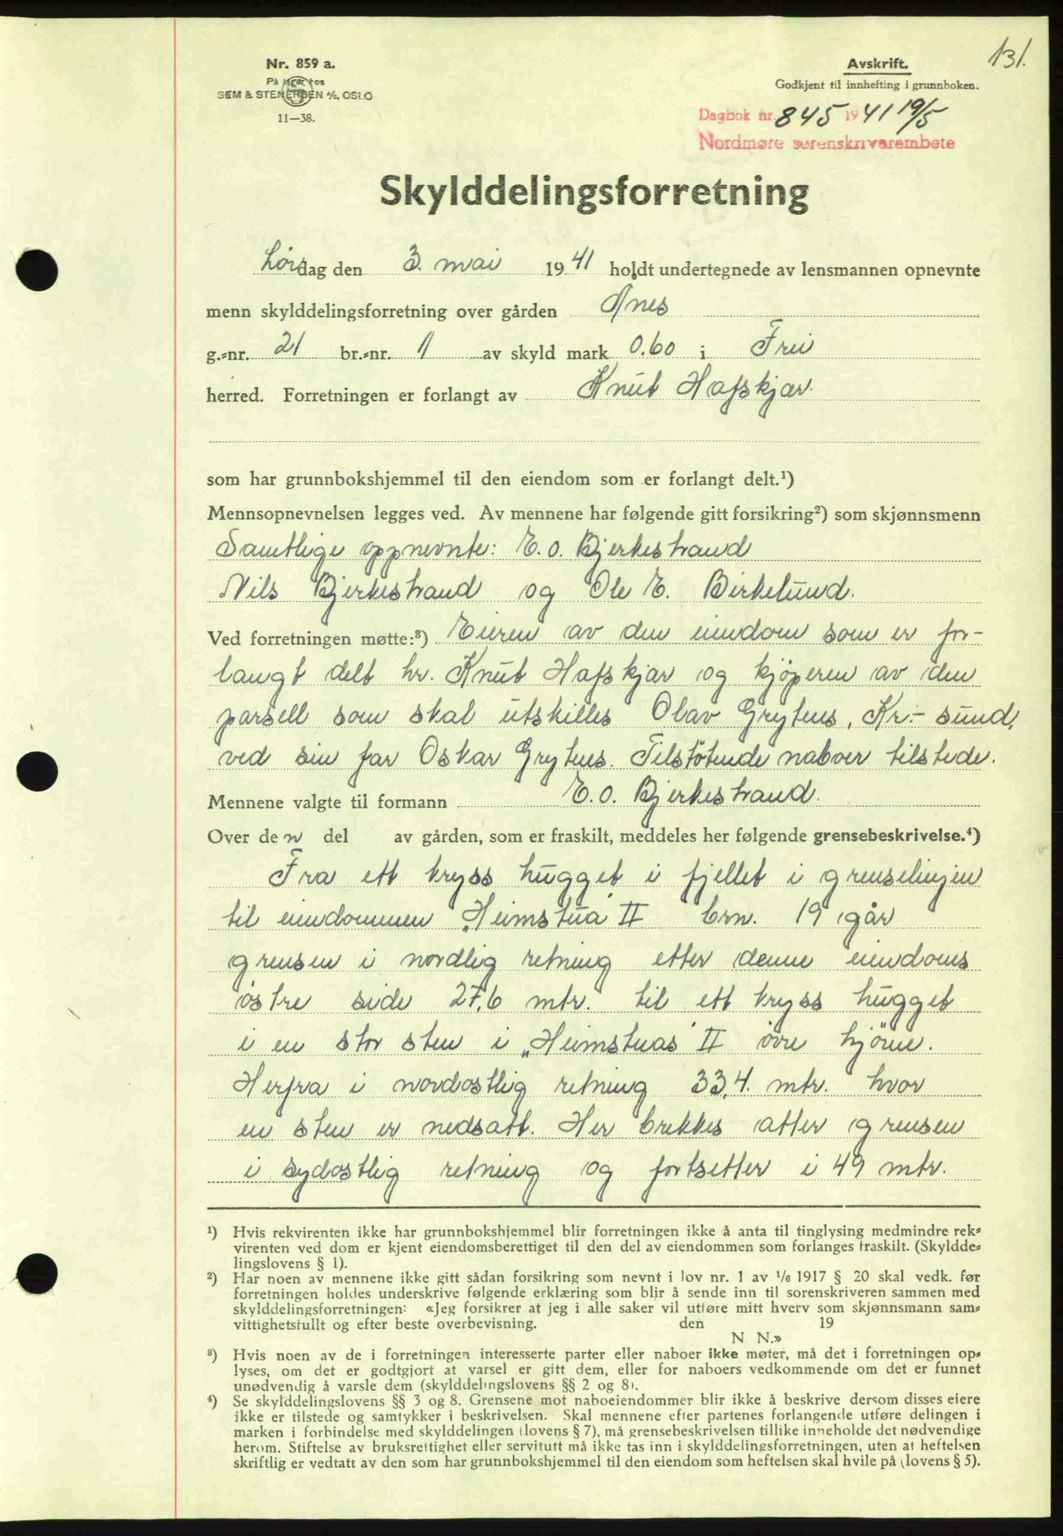 131.
Nr. 859 a.
På lager hos
SEM & STENERSEN A/S, OSLO
11—38.
Avskrift.
Godkjent til innhefting i grunnboken.
Dagbok nr. 845 1941 19/5
Nordmøre sorenskrivarembete
Skylddelingsforretning
Lørdag den 3. mai 1941 holdt undertegnede av lensmannen opnevnte
menn skylddelingsforretning over gården Ønes
g.-nr. 21 br.-nr. 1 av skyld mark 0.60 i Frei
herred. Forretningen er forlangt av Knut Hafskjær.
som har grunnbokshjemmel til den eiendom som er forlangt delt.¹)
Mennsopnevnelsen legges ved. Av mennene har følgende gitt forsikring²) som skjønnsmenn
Samtlige oppnevnte: E. O. Bjerkestrand
Nils Bjerkestrand og Ole E. Birkelund.
Ved forretningen møtte:³) Eieren av den eiendom som er for-
langt delt hr. Knut Hafskjær og kjøperen av den
parsell som skal utskilles Olav Grytnes, Kr.-sund,
ved sin far Oskar Grytnes. Tilstötende naboer tilstede.
Mennene valgte til formann E. O. Bjerkestrand.
Over den del av gården, som er fraskilt, meddeles her følgende grensebeskrivelse.⁴)
Fra ett kryss hugget i fjellet i grenselinjen
til eiendommen „Heimstua" II brn. 19 går
grensen i nordlig retning etter denne eiendoms
östre side 27,6 mtr. til ett kryss hugget
i en stor sten i „Heimstuas" II övre hjörne.
Herfra i nordostlig retning 33,4. mtr. hvor
en sten er nedsatt. Her brekkes atter grensen
i sydostlig retning og fortsetter i 49 mtr.
¹) Hvis rekvirenten ikke har grunnbokshjemmel blir forretningen ikke å anta til tinglysing medmindre rek-
virenten ved dom er kjent eiendomsberettiget til den del av eiendommen som forlanges fraskilt. (Skyldde-
lingslovens § 1).
²) Har noen av mennene ikke gitt sådan forsikring som nevnt i lov nr. 1 av 1/6 1917 § 20 skal vedk. før
forretningen holdes underskrive følgende erklæring som blir å sende inn til sorenskriveren sammen med
skylddelingsforretningen: «Jeg forsikrer at jeg i alle saker vil utføre mitt hverv som skjønnsmann sam-
vittighetsfullt og efter beste overbevisning. den 19
N. N.»
³) Hvis noen av de i forretningen interesserte parter eller naboer ikke møter, må det i forretningen op-
lyses, om det er godtgjort at varsel er gitt dem, eller for naboers vedkommende om det er funnet
unødvendig å varsle dem (skylddelingslovens §§ 2 og 8).
⁴) Se skylddelingslovens §§ 3 og 8. Grensene mot naboeiendommer blir ikke å beskrive dersom disses eiere
ikke er tilstede og samtykker i beskrivelsen. Skal mennene efter partenes forlangende utføre delingen i
marken i forbindelse med skylddelingen (lovens § 7), må grensebeskrivelsen tillike inneholde det nødvendige
herom. Stiftelse av bruksrettighet eller servitutt må ikke tas inn i skylddelingsforretningen, uten at heftelsen
skriftlig er vedtatt av den som har grunnbokshjemmel til den eiendom som heftelsen skal hvile på (lovens § 5).